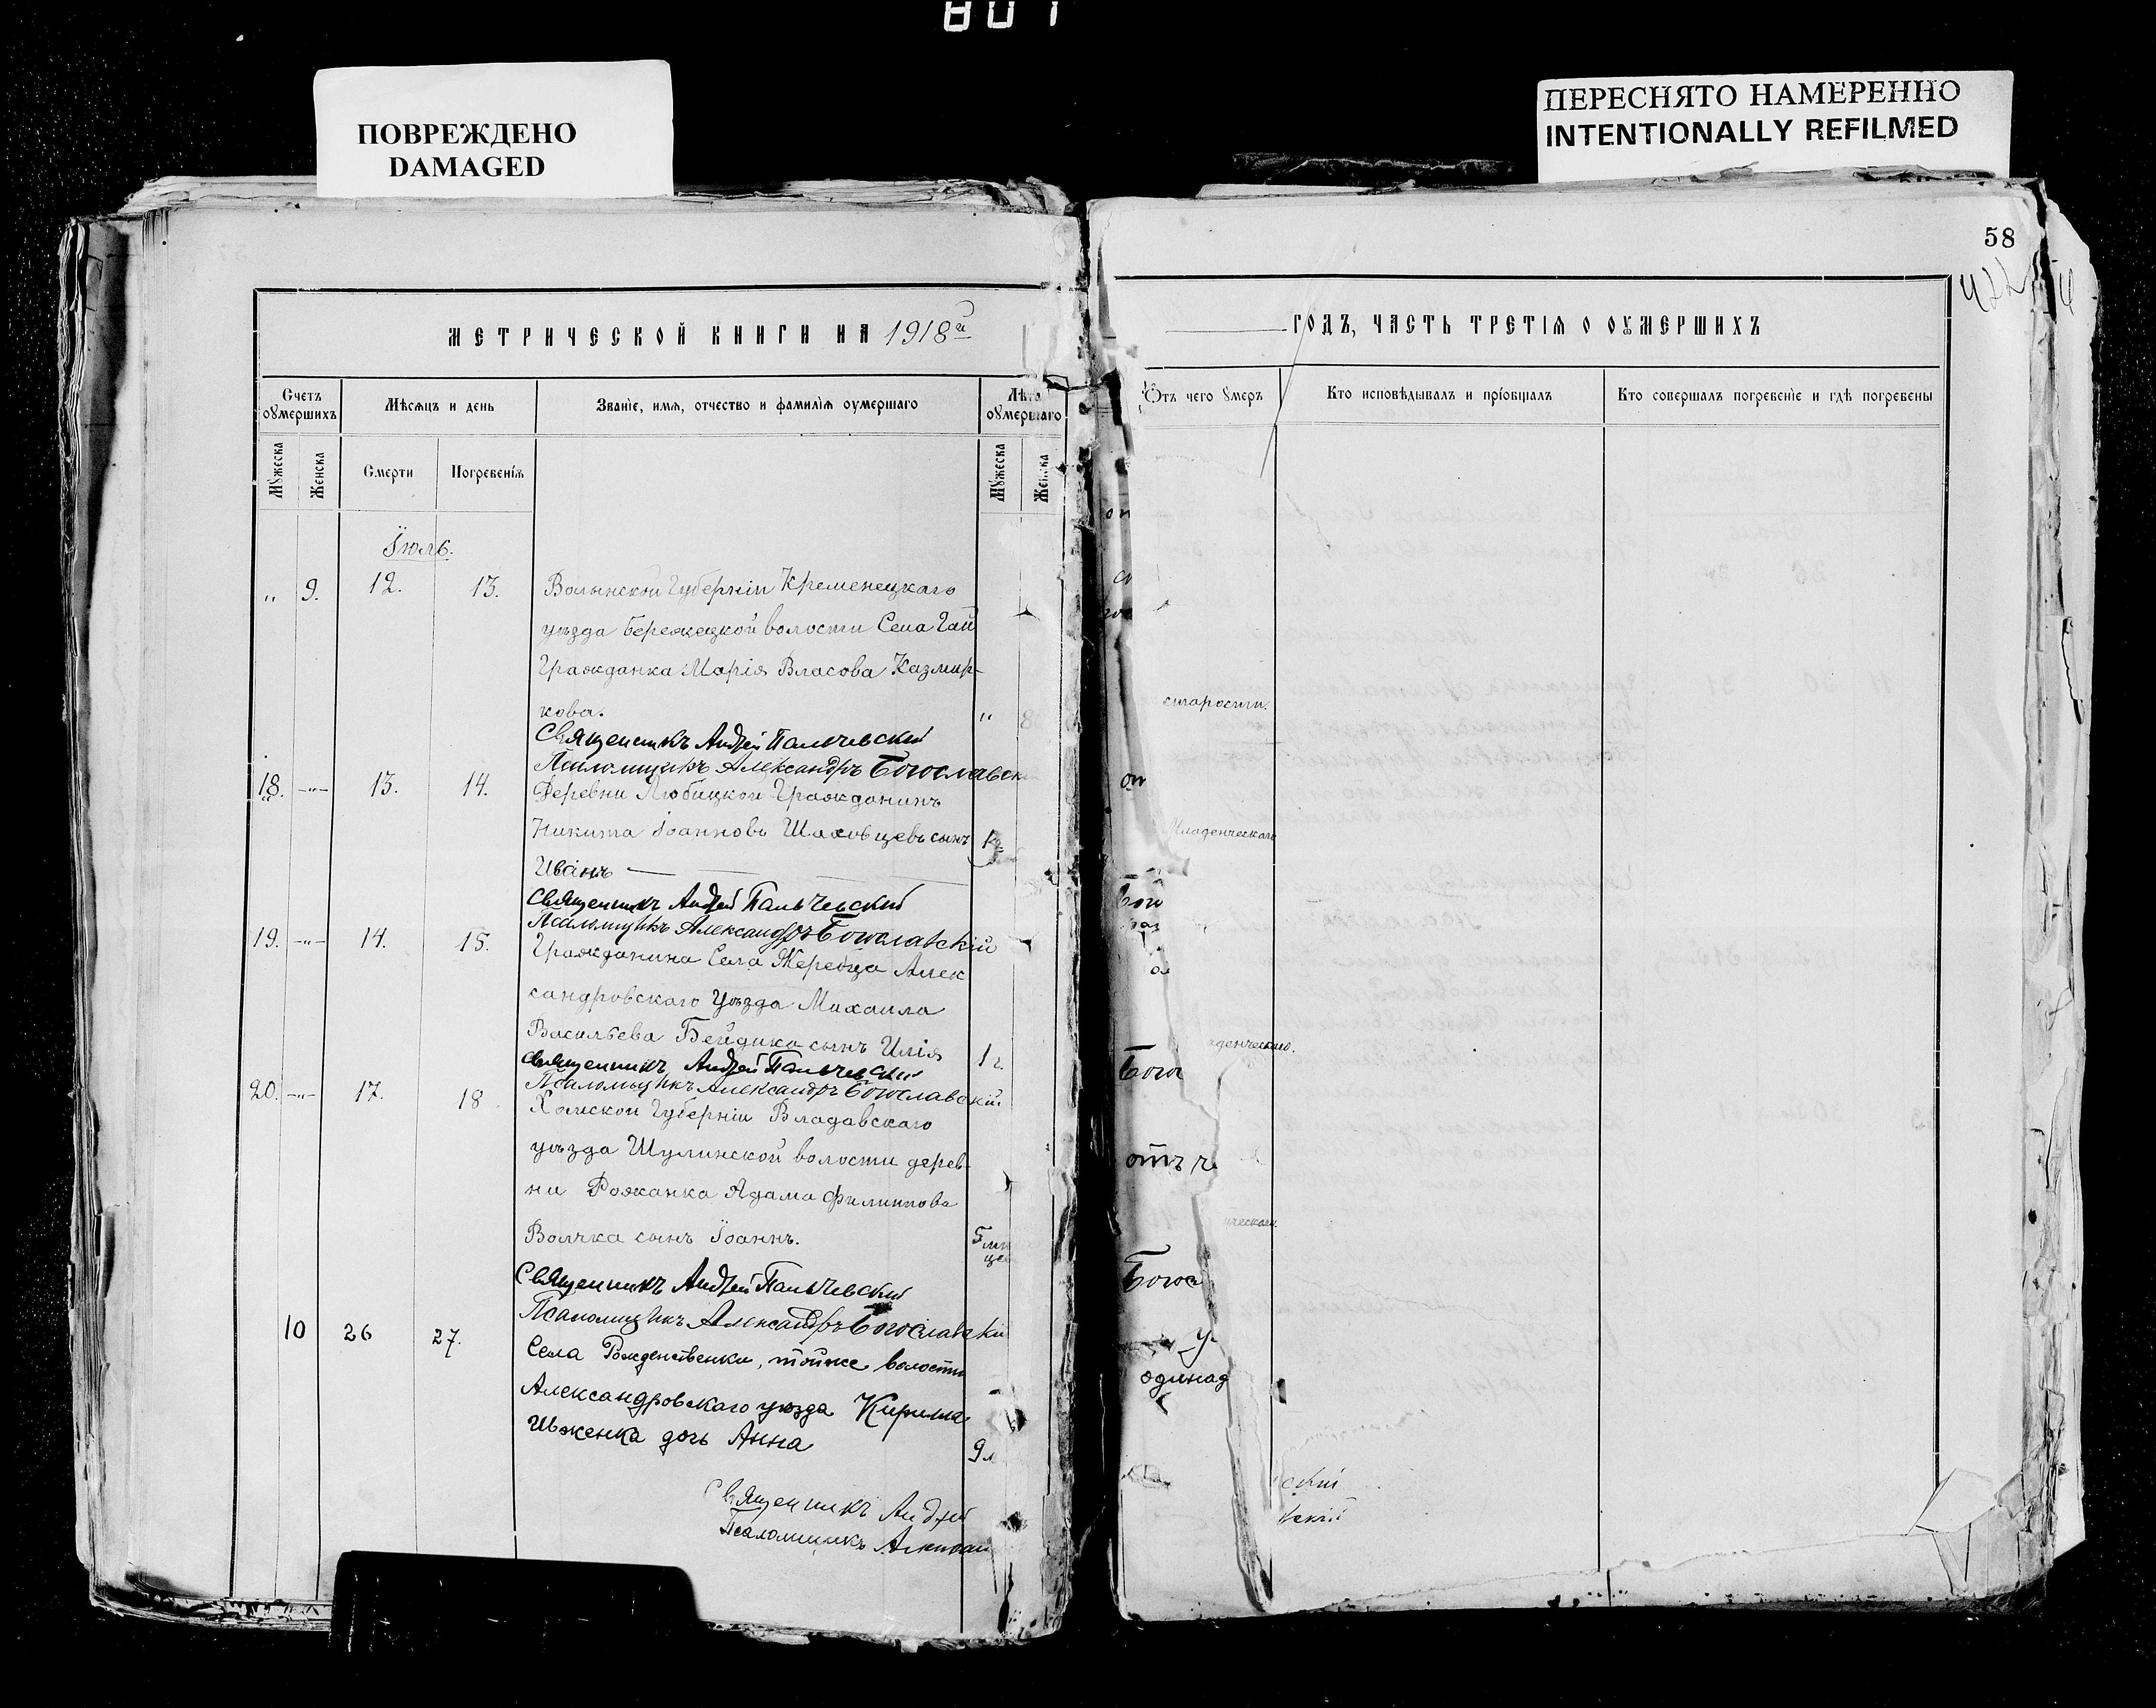 801
ПОВРЕЖДЕНО
DAMAGED
ПЕРЕСНЯТО НАМЕРЕННО
INTENTIONALLY REFILMED
58
МЕТРИЧЕСКОЙ КНИГИ НА 1918й
ГОДЪ, ЧАСТЬ ТРЕТІЯ О ОУМЕРШИХЪ
Счетъ оумершихъ
Мѣсяцъ и день
Званіе, имя, отчество и фамилія оумершаго
Лѣта оумершаго
Отъ чего умеръ
Кто исповѣдывалъ и пріобщалъ
Кто совершалъ погребеніе и гдѣ погребены
Мужеска
Женска
Смерти
Погребенія
Мужеска
Женска
Іюль.
„ 9. 12. 13. Волынской Губерніи Кременецкаго
уѣзда Бережецкой волости Села Гай
Гражданка Марія Власова Казмир-
кова. „ 8
старости.
Священникъ Андрей Пальчевскій
Псаломщикъ Александръ Богославск
18. -„- 13. 14. Деревни Любицкой Гражданинъ
Никита Іоанновъ Шаховцевъ сынъ
Младенческаго
Иванъ
Священникъ Андрей Пальчевский
Псаломщикъ Александръ Богославскій
19. -„- 14. 15. Гражданина Села Жеребца Алек
сандровскаго Уѣзда Михаила
Васильева Бейдика сынъ Илія 1 г.
денческаго.
Священникъ Андрей Пальчевский
Псаломщикъ Александръ Богославскій.
20. -„- 17. 18. Холмской Губерніи Владавскаго
уѣзда Шулинской волости дерев-
ни Рожанка Адама Филиппова
Волчка сынъ Іоаннъ. 5 м
це
ческаго.
Священникъ Андрей Пальчевский
Псаломщикъ Александръ Богославскій
10 26 27. Села Рожденственки, тойже волости
Александровскаго уѣзда Кирилла
Ивженка дочь Анна 9 м
Священникъ Андрей
Псаломщикъ Александ
Бого
отъ ч
Богос
у
одинад
ский
вскій